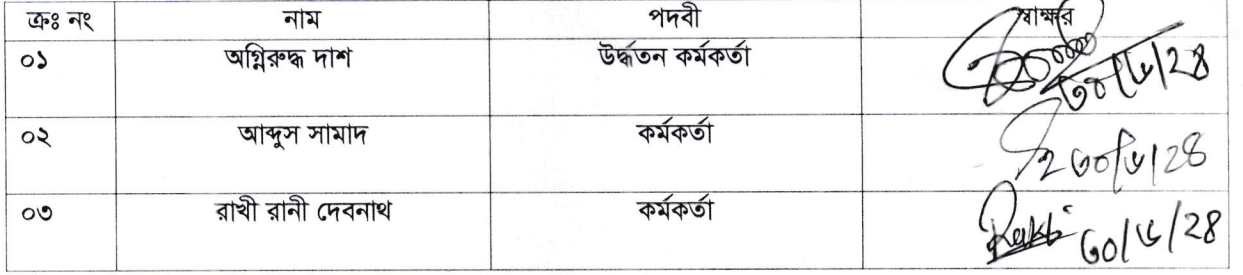 ক্রঃ নং নাম পদবী স্বাক্ষর
০১ অগ্নিরুদ্ধ দাশ উর্দ্ধতন কর্মকর্তা ৩০/৬/২৪
০২ আব্দুস সামাদ কর্মকর্তা ৩০/৬/২৪
০৩ রাখী রানী দেবনাথ কর্মকর্তা Rakhi ৩০/৬/২৪